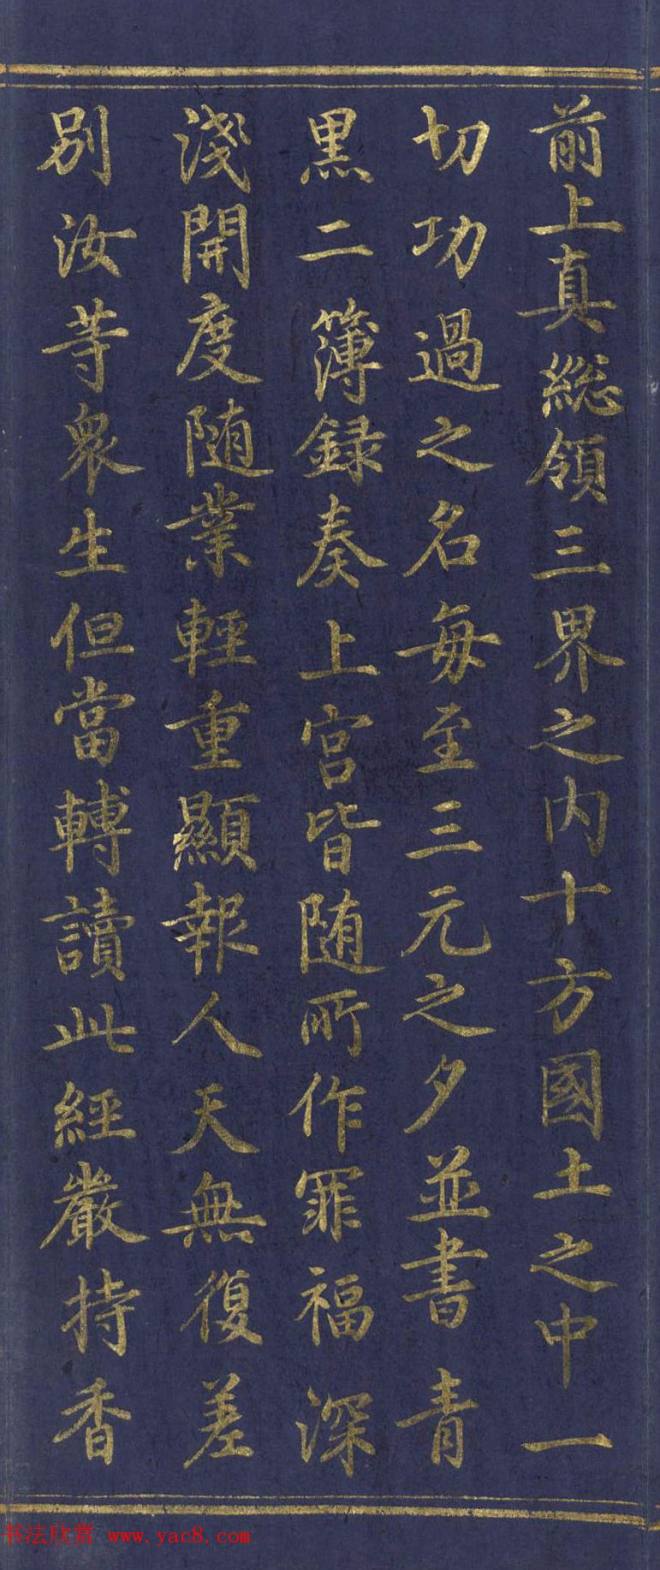 前上真総領三界之内十方國土之中一
切功過之名每至三元之夕並書青
黒二簿録奏上宮皆随所作罪福深
淺開度随業輕重顯報人天無復差
別汝等衆生但當轉讀此經嚴持香
书法欣赏 www.yac8.com